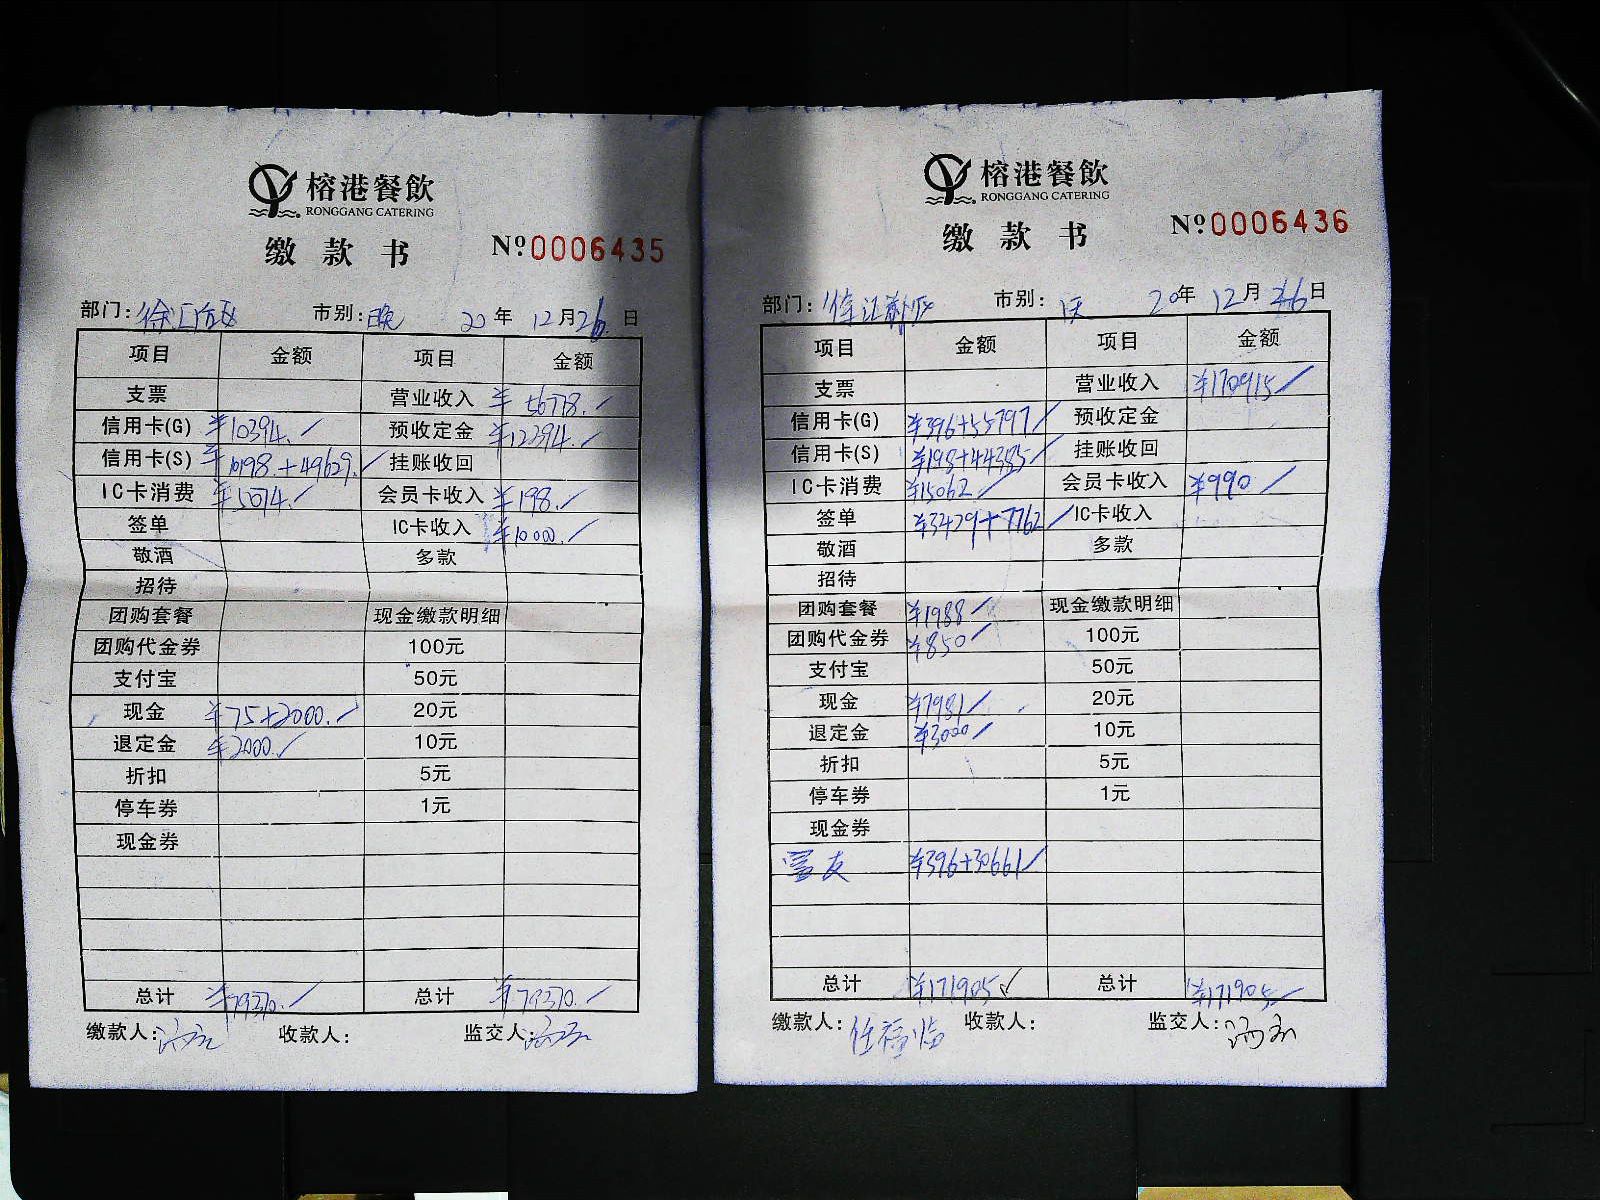 榕港餐飲
RONGGANG CATERING
缴款书 Nº0006435
部门: 徐汇店 市别: 晚 20年12月26日
项目 金额 项目 金额
支票 营业收入 ¥56778.
信用卡(G) ¥10394. 预收定金 ¥12394.
信用卡(S) ¥10198.+49629. 挂账收回
IC卡消费 ¥5074. 会员卡收入 ¥198.
签单 IC卡收入 ¥10000.
敬酒 多款
招待
团购套餐 现金缴款明细
团购代金券 100元
支付宝 50元
现金 ¥75+2000. 20元
退定金 ¥2000. 10元
折扣 5元
停车券 1元
现金券
总计 ¥79370. 总计 ¥79370.
缴款人: 收款人: 监交人:
榕港餐飲
RONGGANG CATERING
缴款书 Nº0006436
部门: 徐汇 市别: 20年12月26日
项目 金额 项目 金额
支票 营业收入 ¥170915
信用卡(G) ¥396+55797 预收定金
信用卡(S) ¥198+44385 挂账收回
IC卡消费 ¥15062 会员卡收入 ¥990
签单 ¥3429+7762 IC卡收入
敬酒 多款
招待
团购套餐 ¥1988 现金缴款明细
团购代金券 ¥850 100元
支付宝 50元
现金 ¥7981 20元
退定金 ¥3000 10元
折扣 5元
停车券 1元
现金券
富友 ¥396+30661
总计 ¥171905 总计 ¥171905
缴款人: 收款人: 监交人: